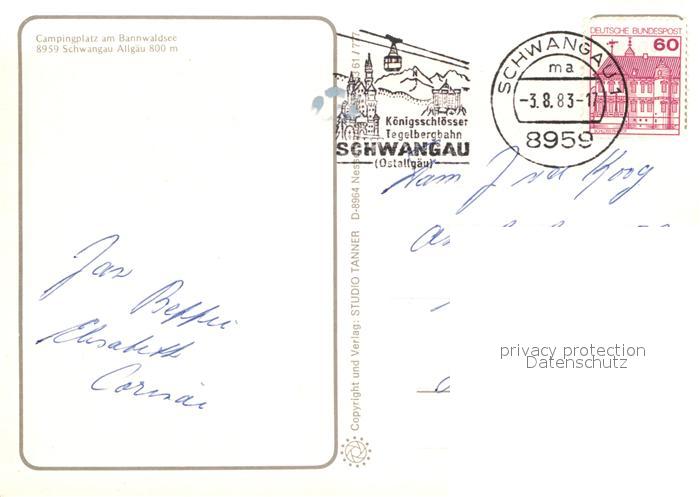 Campingplatz am Bannwaldsee
8959 Schwangau Allgäu 800 m
Jan
Beppie
Elisabeth
Copyright und Verlag: STUDIO TANNER D-8964 Ness
61/7
Königsschlösser
Tegelbergbahn
SCHWANGAU
(Ostallgäu)
SCHWANGAU 1
ma
-3.8.83-17
8959
DEUTSCHE BUNDESPOST
60
Fam J vd Koog
privacy protection
Datenschutz